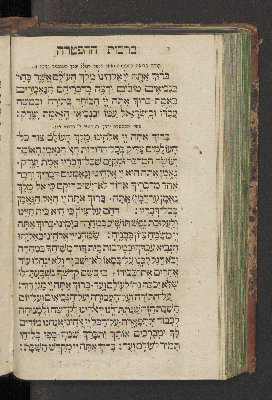 ברכות ההפטרה
ברוך אתה יי אלהינו מלך העולם אשר בחר
בנביאים טובים ורצה בדבריהם הנאמרים
באמת ברוך אתה יי הבוחר בתורה ובמשה
עבדו ובישראל עמו ובנביאי האמת וצדק:
ברוך אתה יי אלהינו מלך העולם צור כל
העולמים צדיק בכל הדורות האל הנאמן האומר
ועושה המדבר ומקים שכל דבריו אמת וצדק:
נאמן אתה הוא יי אלהינו ונאמנים דבריך ודבר
אחד מדבריך אחור לא ישוב ריקם כי אל מלך
נאמן אתה. ברוך אתה יי האל הנאמן
בכל דבריו: רחם על ציון כי היא בית חיינו
ולעלובת נפש תושיע במהרה בימינו. ברוך אתה
יי משמח ציון בבניה: שמחנו יי אלהינו באליהו
הנביא עבדך ובמלכות בית דוד משיחך במהרה
יבא ויגל לבנו על כסאו לא ישב זר ולא ינחלו עוד
אחרים את כבודו. כי בשם קדשך נשבעת לו
שלא יכבה נרו לעולם ועד. ברוך אתה יי מגן דוד:
על התורה ועל העבודה ועל הנביאים ועל יום
השבת הזה שנתת לנו יי אלהינו לקדושה ולמנוחה
לכבוד ולתפארת: על הכל יי אלהינו אנחנו מודים
לך ומברכים אותך יתברך שמך בפי כל חי
תמיד לעולם ועד. ברוך אתה יי מקדש השבת: